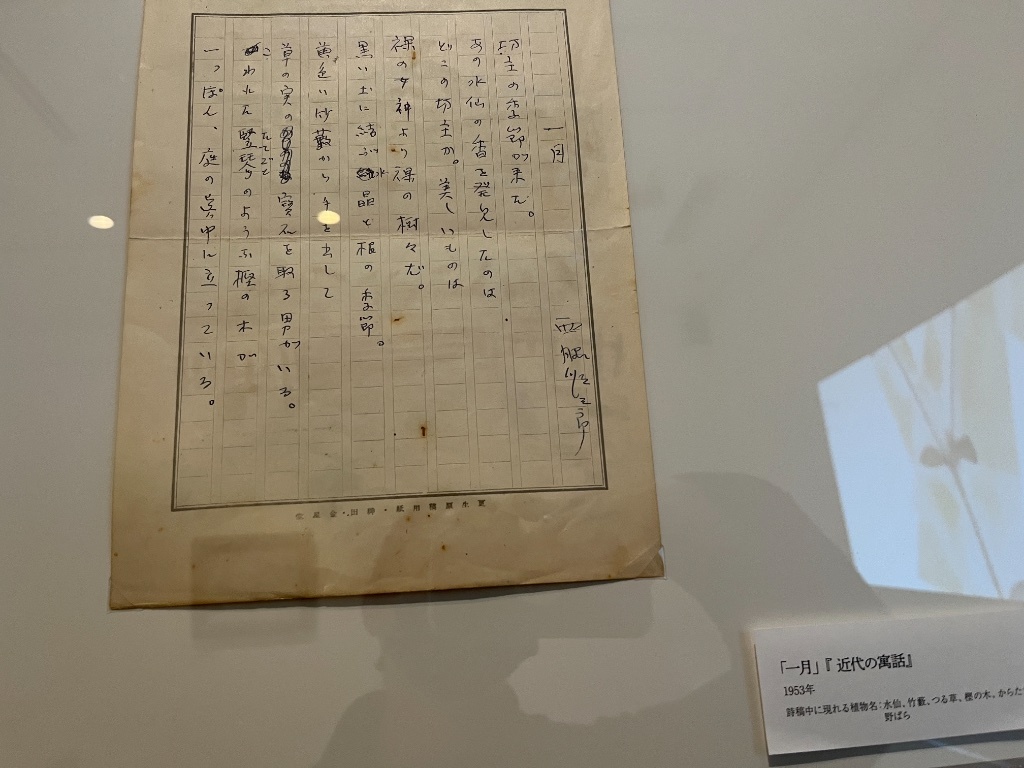 一月
西脇順三郎
坊主の季節が来た。
あの水仙の香を発見したのは
どこの坊主か。美しいものは
裸の女神より裸の樹々だ。
黒い土に結ぶ氷晶と根の季節。
黄色い竹藪から手を出して
草の実の寶石を取る男がいる。
こわれた竪琴のような樫の木が
たてごと
一っぽん、庭の眞中に立っている。
「一月」『近代の寓話』
1953年
詩稿中に現れる植物名：水仙、竹藪、つる草、樫の木、からた
野ばら